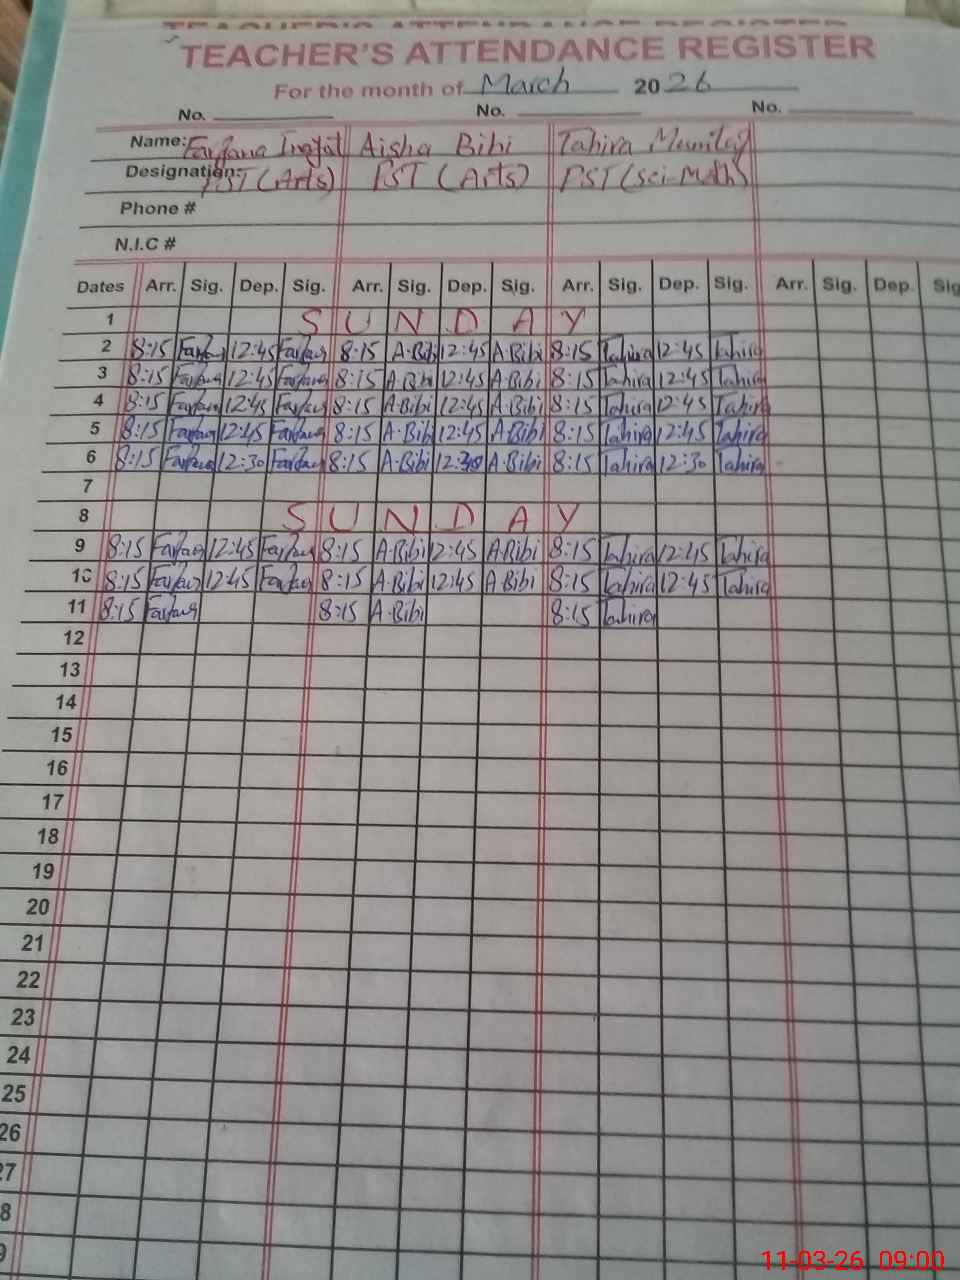 TEACHER'S ATTENDANCE REGISTER
TEACHER'S ATTENDANCE REGISTER
For the month of March 2026
No. No. No.
Name: Farzana Aisha Bibi Tahira
Designation: PST (Arts) PST (Arts) PST (Sci-Math)
Phone #
N.I.C #
Dates Arr. Sig. Dep. Sig. Arr. Sig. Dep. Sig. Arr. Sig. Dep. Sig. Arr. Sig. Dep. Sig
1 S U N D A Y
2 8:15 12:45 8:15 A.Bibi 12:45 A.Bibi 8:15 Tahira 12:45 Tahira
3 8:15 12:45 8:15 A.Bibi 12:45 A.Bibi 8:15 Tahira 12:45 Tahira
4 8:15 12:45 8:15 A.Bibi 12:45 A.Bibi 8:15 Tahira 12:45 Tahira
5 8:15 12:45 8:15 A.Bibi 12:45 A.Bibi 8:15 Tahira 12:45 Tahira
6 8:15 12:30 8:15 A.Bibi 12:30 A.Bibi 8:15 Tahira 12:30 Tahira
7
8 S U N D A Y
9 8:15 12:45 8:15 A.Bibi 12:45 A.Bibi 8:15 Tahira 12:45 Tahira
10 8:15 12:45 8:15 A.Bibi 12:45 A.Bibi 8:15 Tahira 12:45 Tahira
11 8:15 8:15 A.Bibi 8:15 Tahira
12
13
14
15
16
17
18
19
20
21
22
23
24
25
26
27
8
9
11-03-26 09:00